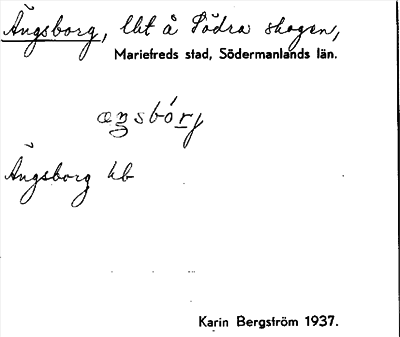 Ängsborg, lht å Södra skogen,
Mariefreds stad, Södermanlands län.
æŋsbórj
Ängsborg hb
Karin Bergström 1937.